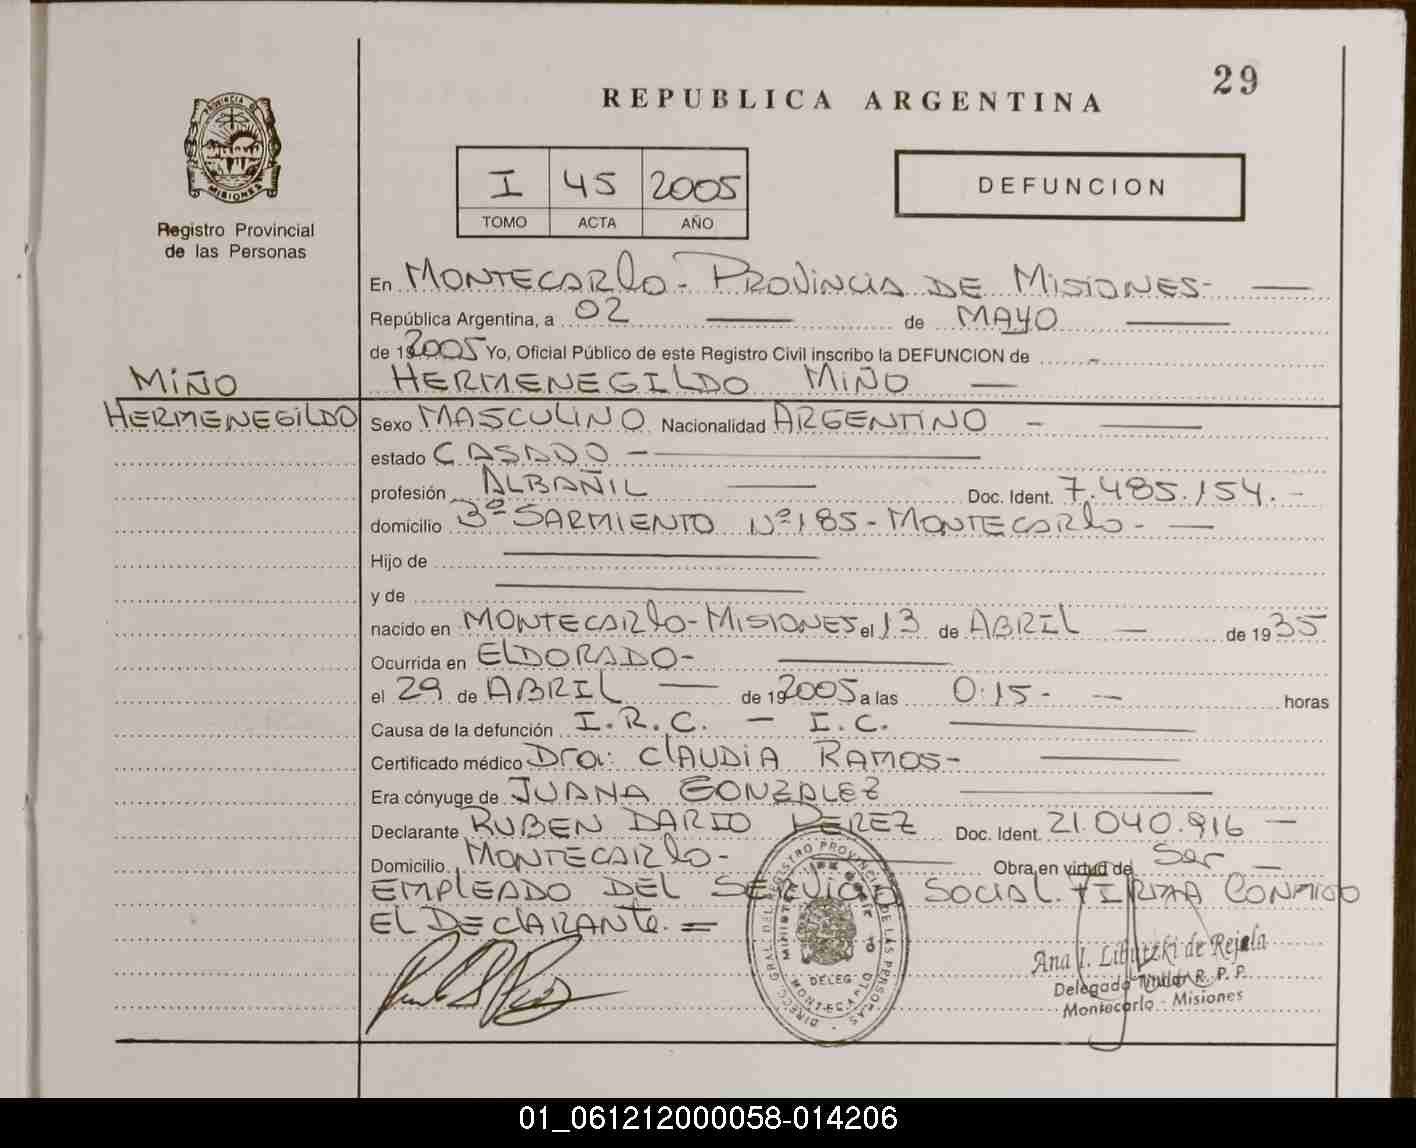 29
REPUBLICA ARGENTINA
PROVINCIA DE
MISIONES
Registro Provincial
de las Personas
I 45 2005
TOMO ACTA AÑO
DEFUNCION
En MONTECARlO - PROVINCIA DE MISIONES -
República Argentina, a 02 de MAYO
de 192005 Yo, Oficial Público de este Registro Civil inscribo la DEFUNCION de -
MIÑO
HERMENEGILDO MIÑO
HERMENEGILDO
Sexo MASCULINO Nacionalidad ARGENTINO -
estado CASADO -
profesión ALBAÑIL Doc. Ident. 7.485.154. -
domicilio Bº SARMIENTO Nº 185 - MONTECARlO -
Hijo de
y de
nacido en MONTECARlO - MISIONES el 13 de ABRIL - de 1935
Ocurrida en ELDORADO -
el 29 de ABRIL de 192005 a las 0:15 - horas
Causa de la defunción I.R.C. - I.C.
Certificado médico Dra: ClAUDIA RAMOS -
Era cónyuge de JUANA GONZALEZ
Declarante RUBEN DARIO PEREZ Doc. Ident. 21.040.916
Domicilio MONTECARlO - Obra en virtud de Ser
EMPlEADO DEL SERVICIO SOCIAL. FIRMA CONMIGO
EL DEClARANTE. =
DIRECC. GRAL. DEL REGISTRO PROVINCIAL DE LAS PERSONAS
DELEG.
MONTECARLO
Ana I. de Rejala
Delegada Titular R. P. P.
Montecarlo - Misiones
01_061212000058-014206